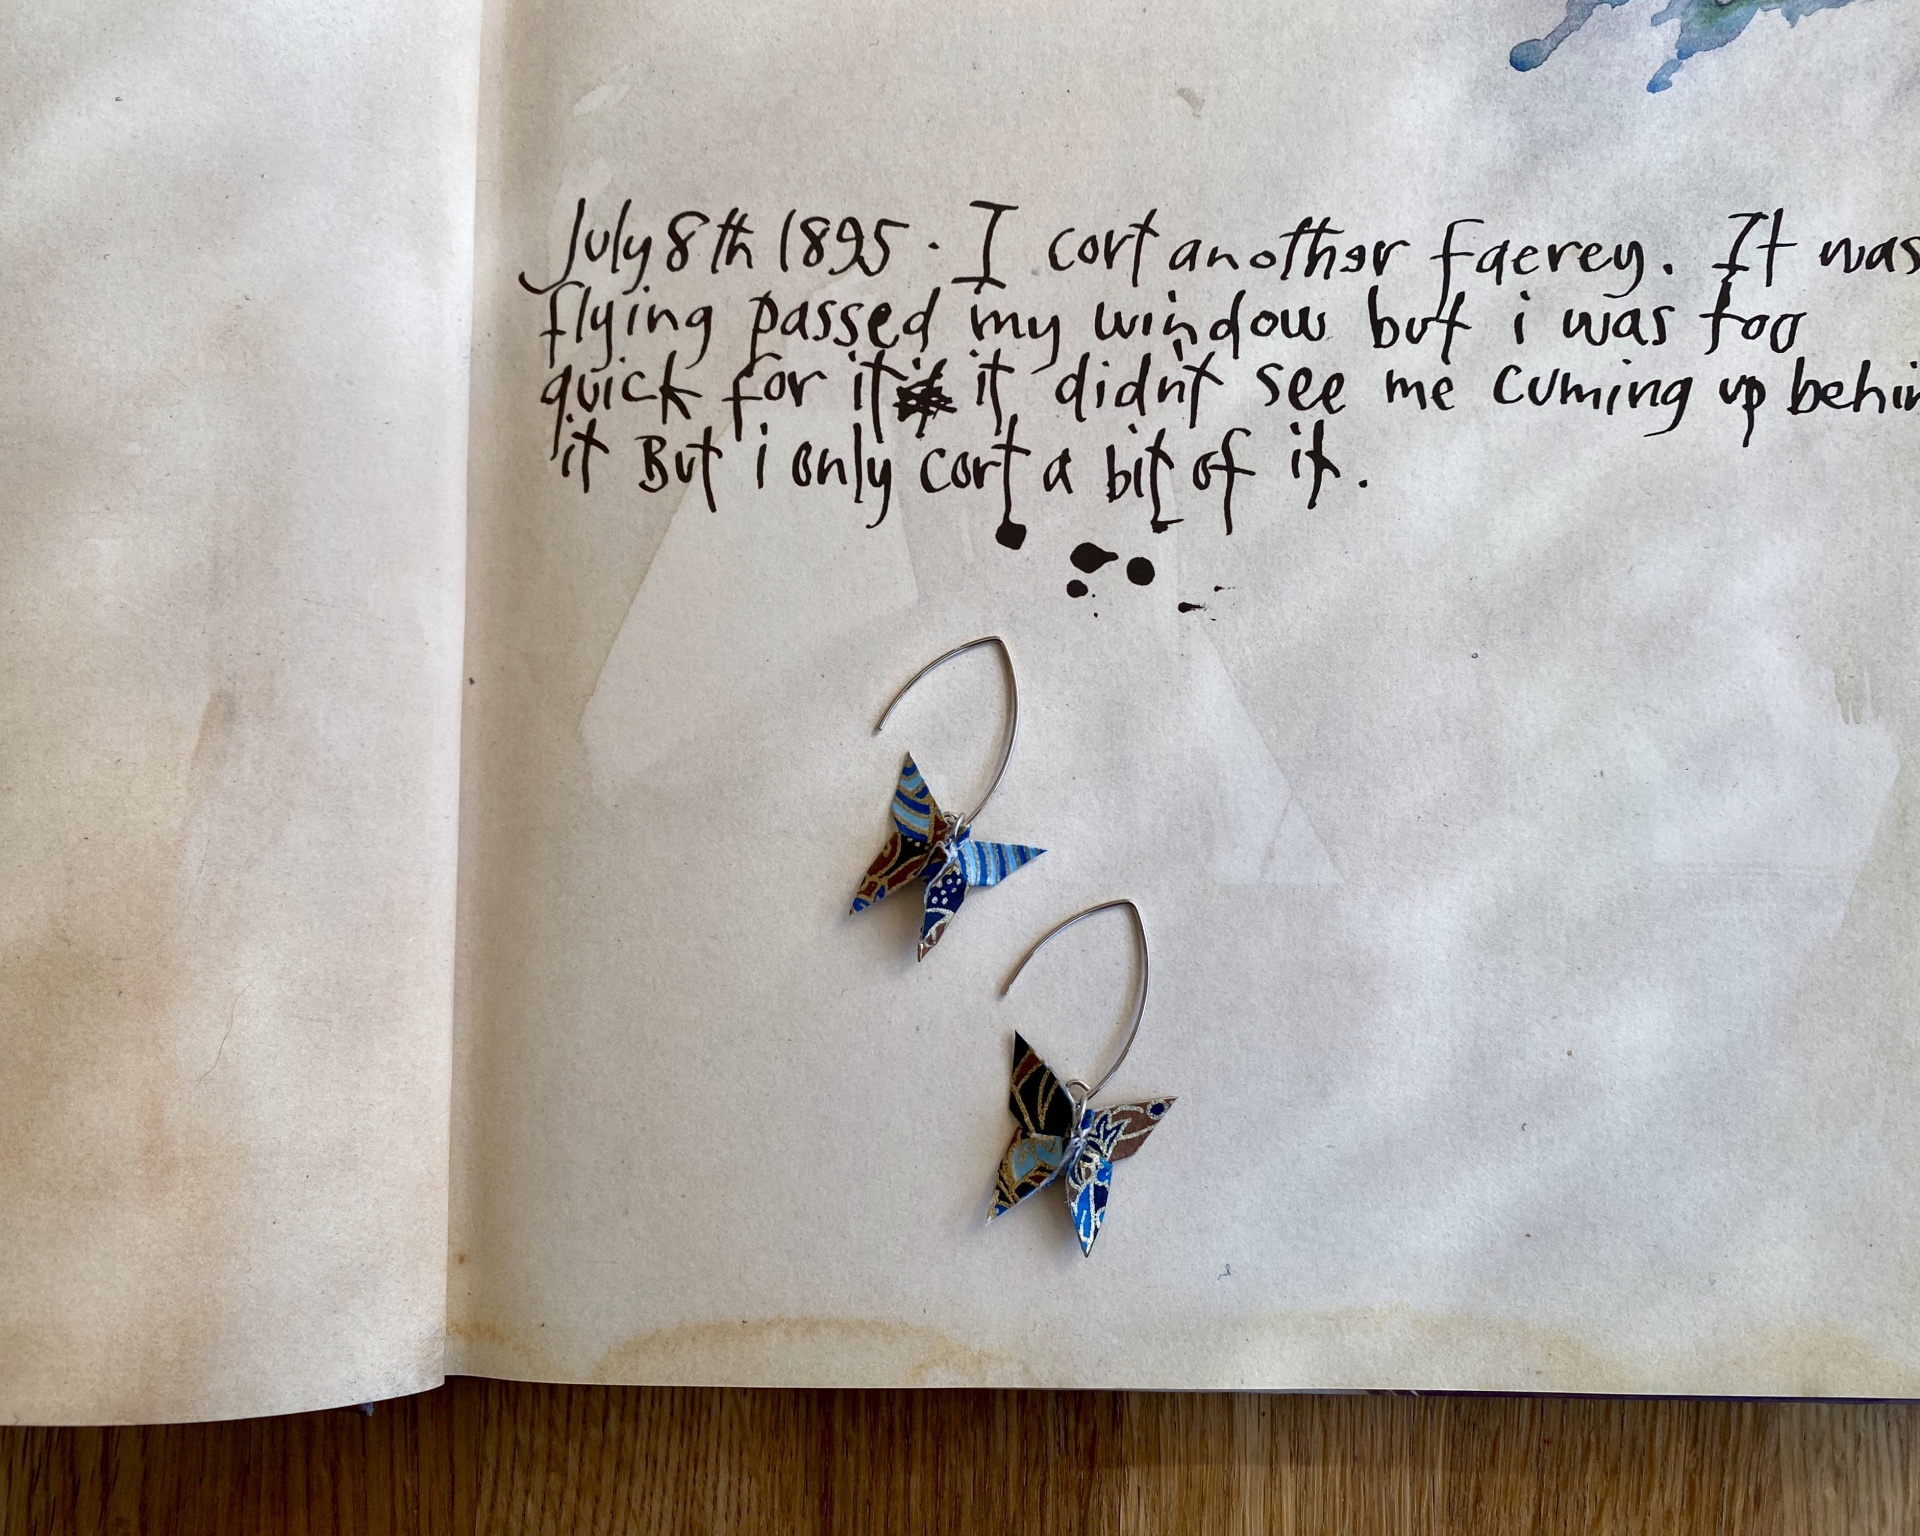 July 8th 1895. I cort another faerey. It was
flying passed my window but i was too
quick for it it didn't see me cuming up behin
it But i only cort a bit of it.